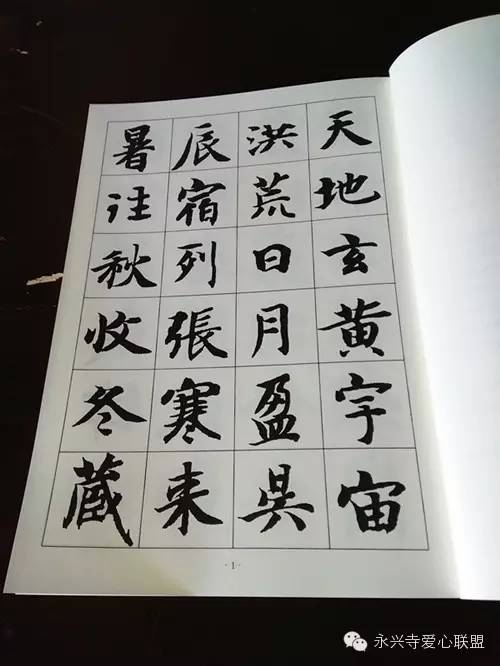 天地玄黄宇宙
洪荒日月盈昃
辰宿列張寒来
暑往秋收冬藏
·1·
永兴寺爱心联盟